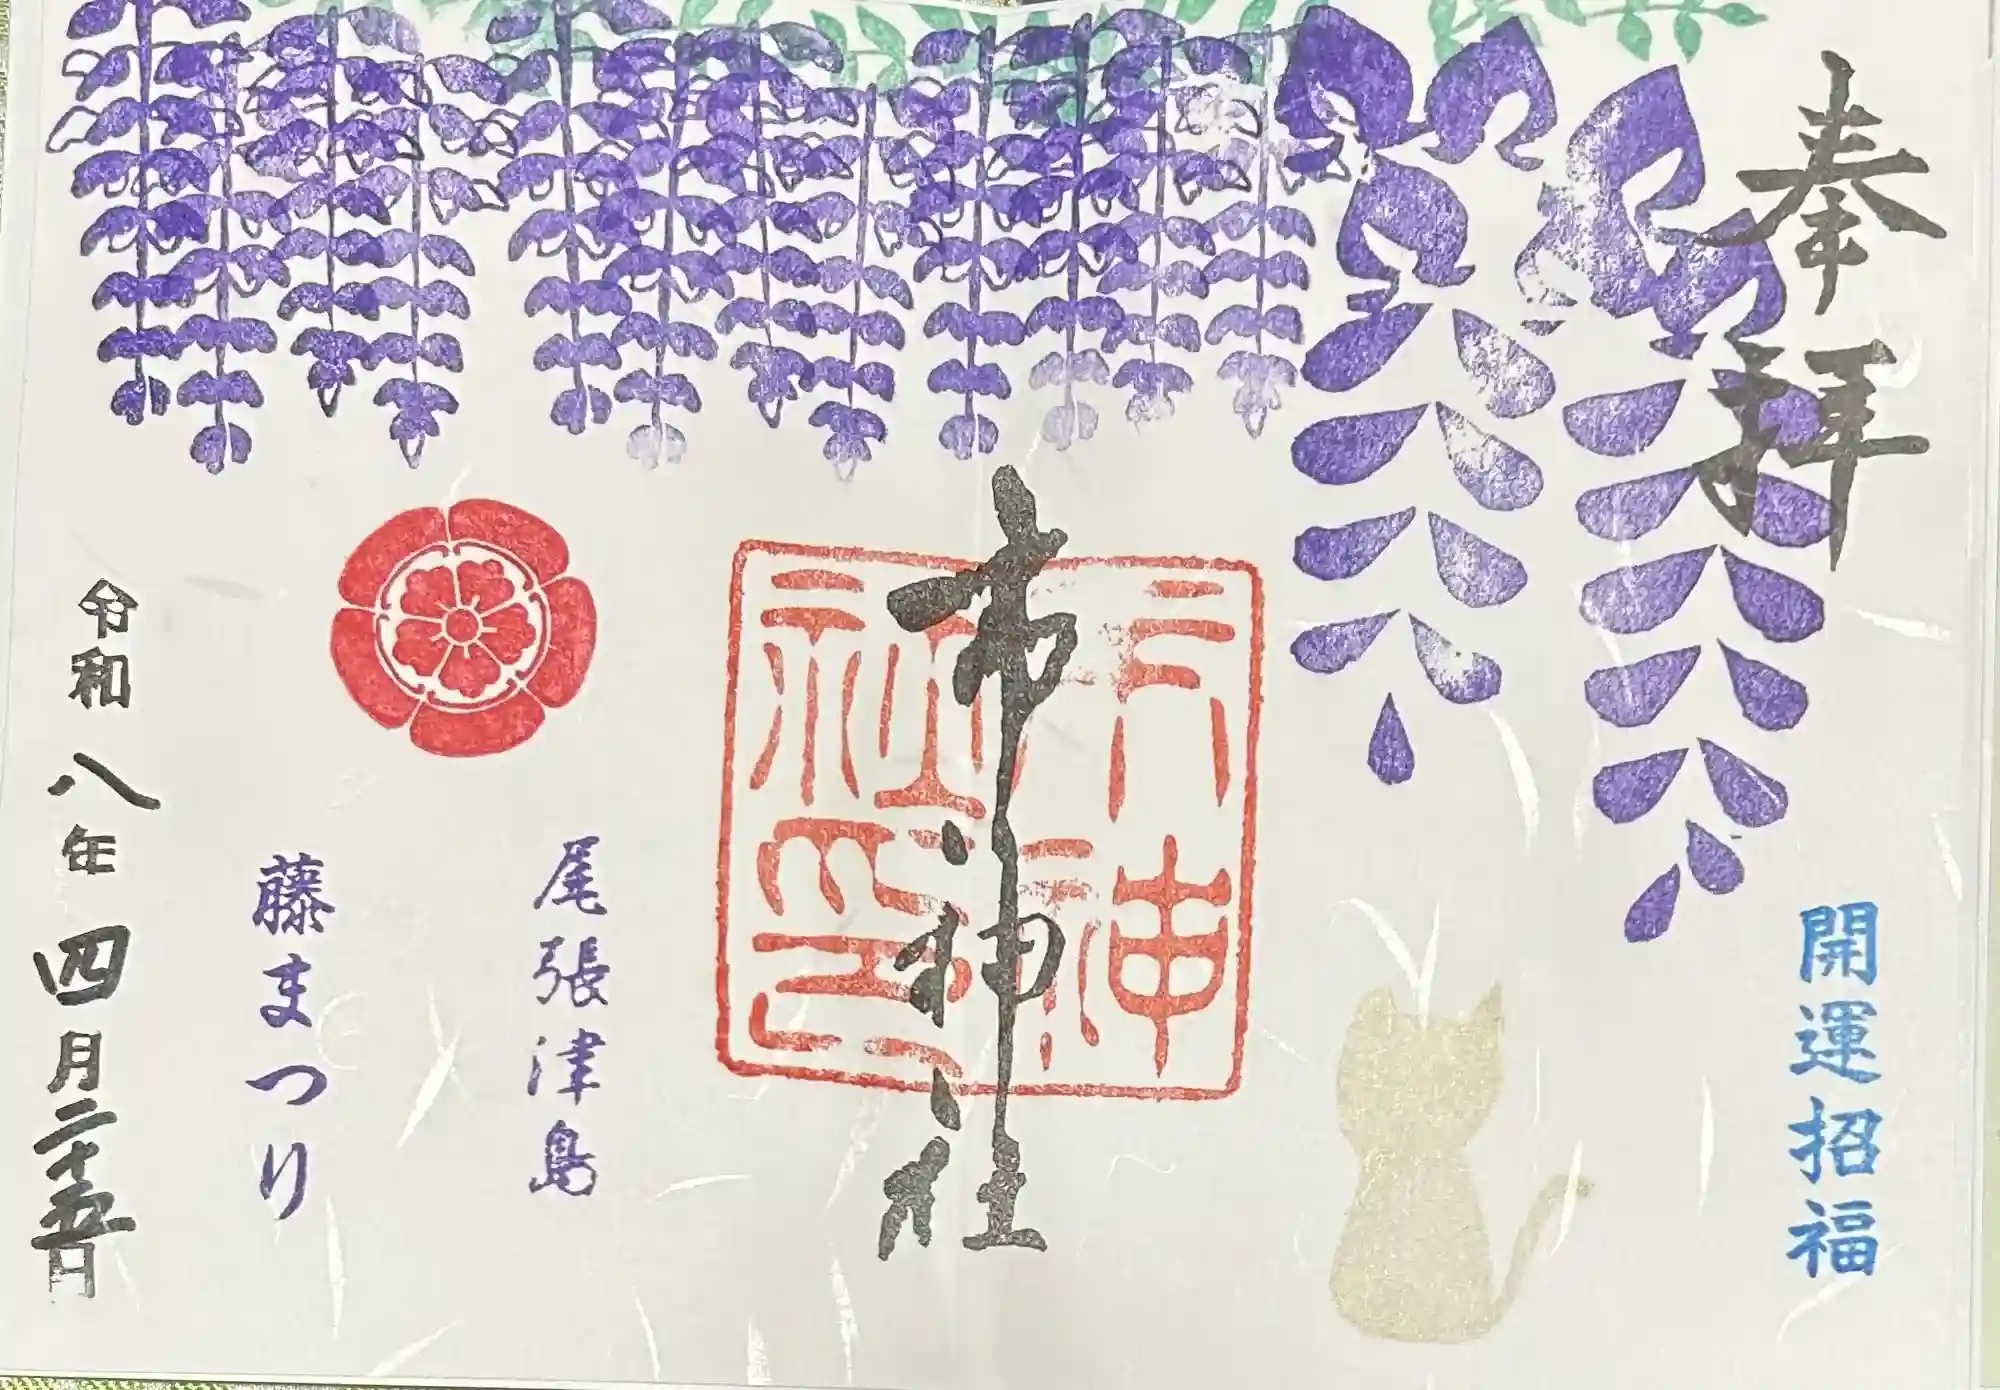 奉拝
開運招福
市神社
尾張津島
藤まつり
令和八年四月二十五日